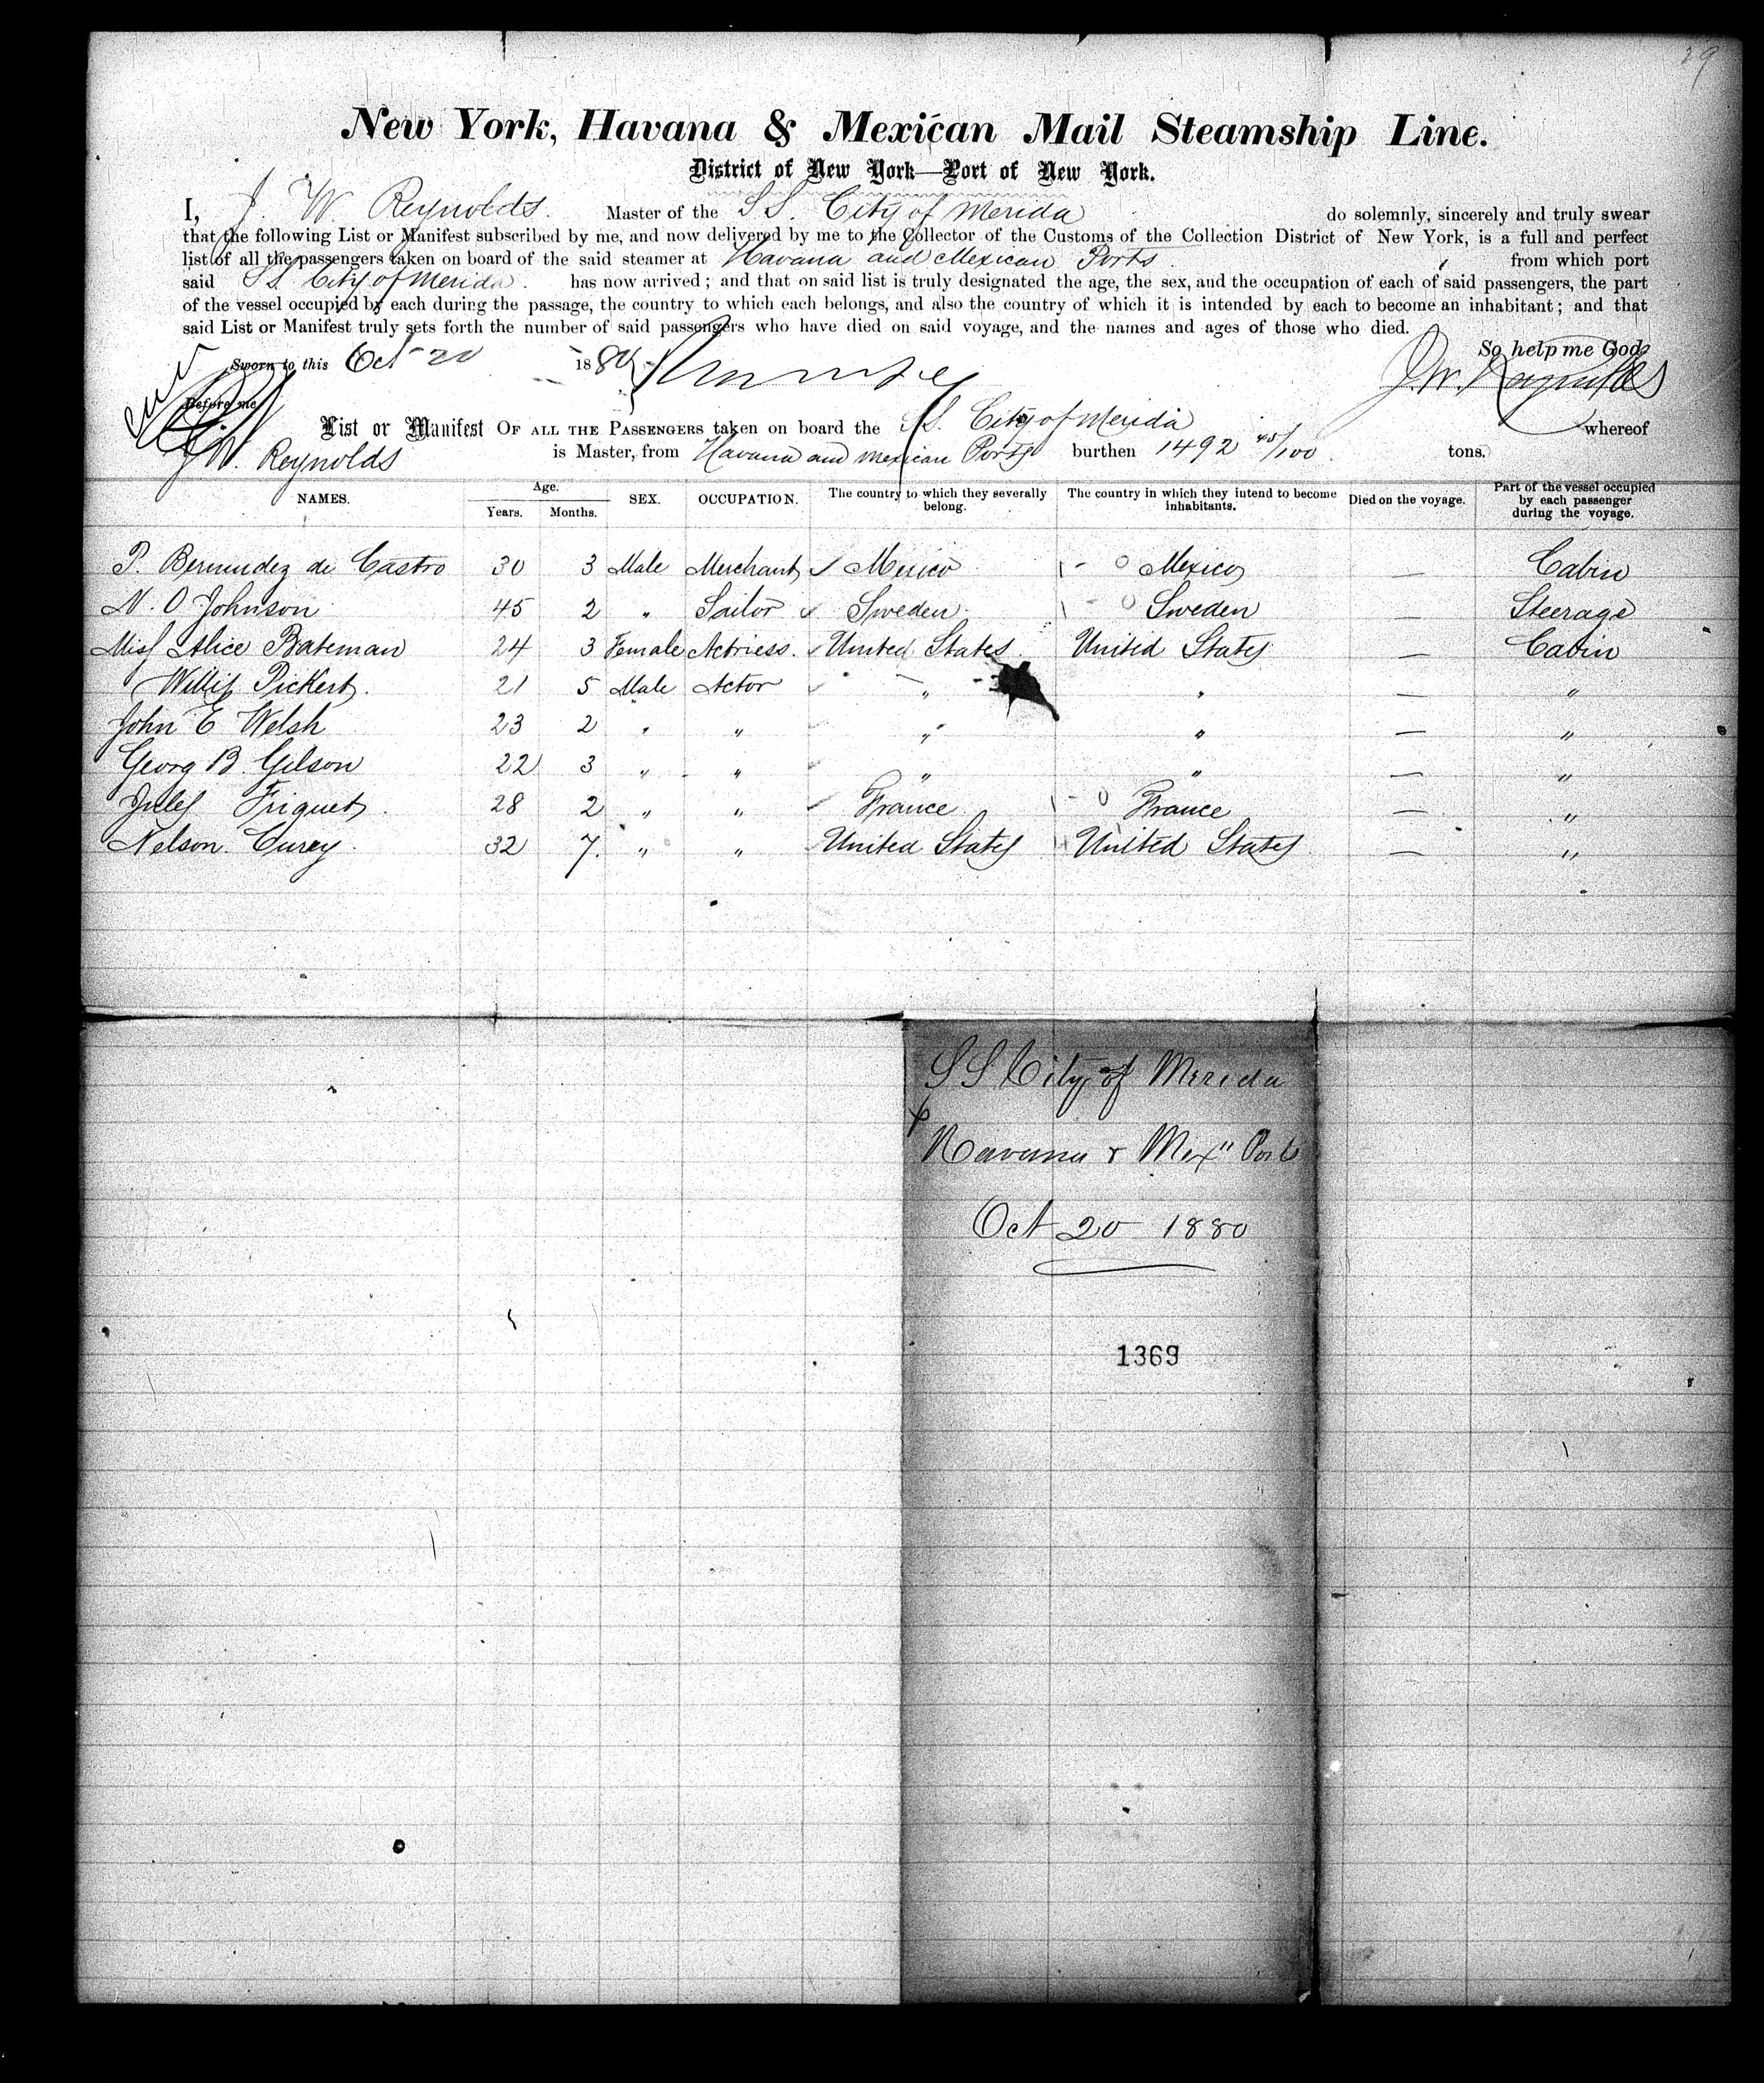 29
New York, Havana & Mexican Mail Steamship Line.
District of New York—Port of New York.
I, J. W. Reynolds. Master of the S.S. City of Merida do solemnly, sincerely and truly swear
that the following List or Manifest subscribed by me, and now delivered by me to the Collector of the Customs of the Collection District of New York, is a full and perfect
list of all the passengers taken on board of the said steamer at Havana and Mexican Ports from which port
said S.S. City of Merida. has now arrived; and that on said list is truly designated the age, the sex, and the occupation of each of said passengers, the part
of the vessel occupied by each during the passage, the country to which each belongs, and also the country of which it is intended by each to become an inhabitant; and that
said List or Manifest truly sets forth the number of said passengers who have died on said voyage, and the names and ages of those who died.
So help me God
Sworn to this Oct 20 1880
J.W. Reynolds
Before me
List or Manifest OF ALL THE PASSENGERS taken on board the S.S. City of Merida whereof
J.W. Reynolds is Master, from Havana and Mexican Ports burthen 1492 45/100. tons.
NAMES. Age. Years. Months. SEX. OCCUPATION. The country to which they severally belong. The country in which they intend to become inhabitants. Died on the voyage. Part of the vessel occupied by each passenger during the voyage.
P. Bermudez de Castro 30 3 Male Merchant Mexico Mexico — Cabin
N. O Johnson 45 2 " Sailor Sweden Sweden — Steerage
Miss Alice Bateman 24 3 Female Actriess. United States. United States — Cabin
Willis Pickert. 21 5 Male Actor " " — "
John E Welsh 23 2 " " " " — "
Georg B. Gilson 22 3 " " " " — "
Jules Friquet. 28 2 " " France France — "
Nelson. Curry. 32 7. " " United States United States — "
SS City of Merida
Havana & Mexn Ports
Oct 20 1880
1369